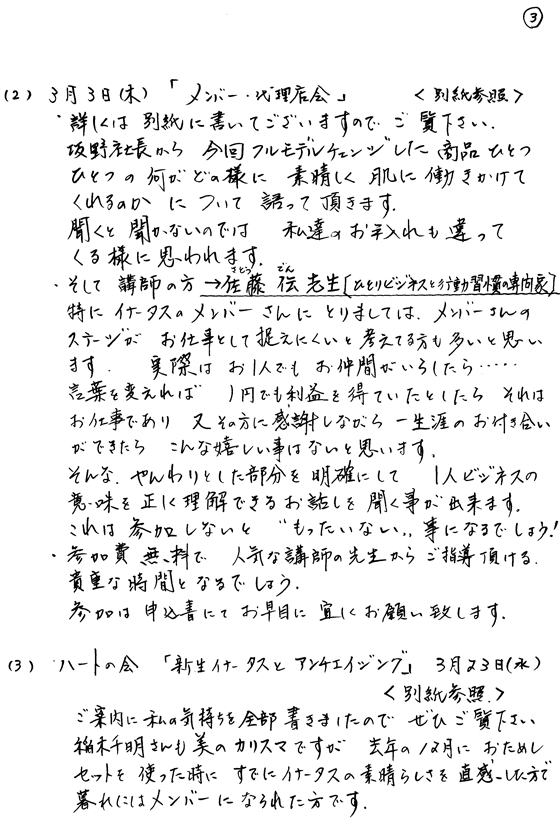 ③
(2) 3月3日(木) 「メンバー・代理店会」 <別紙参照>
・詳しくは 別紙に書いてございますので ご覧下さい.
坂野社長から 今回フルモデルチェンジした 商品ひとつ
ひとつの何がどの様に 素晴しく 肌に働きかけて
くれるのか について 語って頂きます.
聞くと聞かないのでは 私達のお手入れも違って
くる様に思われます.
さとう でん
・そして 講師の方 →佐藤 伝 先生[ひとりビジネスと行動習慣の専門家]
特に イナータスのメンバーさんに とりましては、メンバーさんの
ステージが お仕事として捉えにくいと考えてる方も多いと思い
ます. 実際は お1人でも お仲間がいらしたら……
言葉を変えれば 1円でも利益を得ていたとしたら それは
お仕事であり 又その方に感謝しながら 一生涯のお付き合い
ができたら こんな嬉しい事はないと思います.
そんな、やんわりとした部分を明確にして 1人ビジネスの
意味を正しく理解できるお話しを聞く事が出来ます.
これは 参加しないと "もったいない,, 事になるでしょう!
・参加費 無料で 人気な講師の先生から ご指導頂ける.
貴重な時間となるでしょう.
参加は 申込書にて お早目に 宜しくお願い致します.
(3) ハートの会 「新生イナータスと アンチエイジング」 3月23日(水)
<別紙参照.>
ご案内に私の気持ちを全部書きましたので ぜひご覧下さい
稲木千明さんも美のカリスマですが 去年の12月に おためし
セットを 使った時に すでにイナータスの素晴らしさを直感した方で
暮れにはメンバーになられた方です.